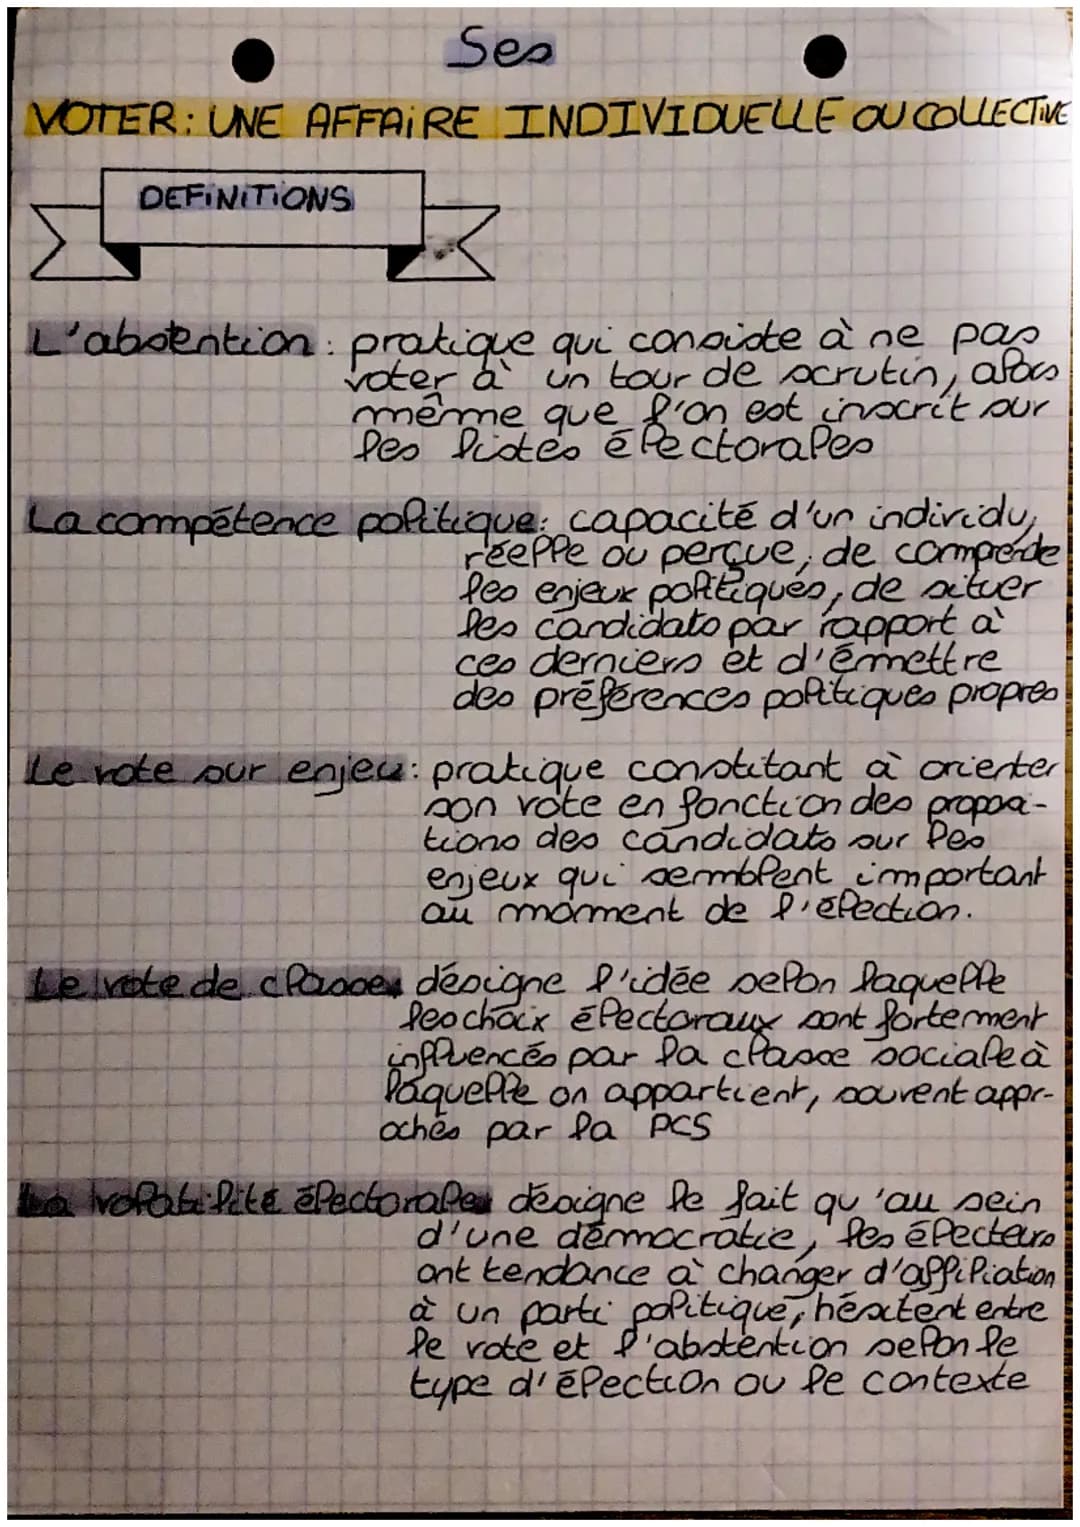 Ses
VOTER: UNE AFFAIRE INDIVIDUELLE OU COLLECTIVE
DEFINITIONS
L'abstention: pratique qui consiste à ne pas
voter à un tour de scrutin, alors
même que l'on est inscrit sur
les listes électorales
La compétence politique: capacité d'un individu,
réelle ou perçue, de comprende
les enjeux politiques, de situer
les candidats par rapport à
ces derniers et d'émettre
des préférences politiques propres
Le vote sur enjeu: pratique constitant à orienter
son vote en fonction des proposi-
tions des candidats sur les
enjeux qui semblent important
au moment de l'élection.
Le vote de classe: désigne l'idée selon laquelle
les choix électoraux sont fortement
influencés par la classe sociale à
laquelle on appartient, souvent appr-
ochés par la PCS
La volatilité électorale: désigne le fait qu'au sein
d'une démocratie, les électeurs
ont tendance à changer d'affiliation
à un parti politique, hésitent entre
le vote et l'abstention selon le
type d'élection ou le contexte